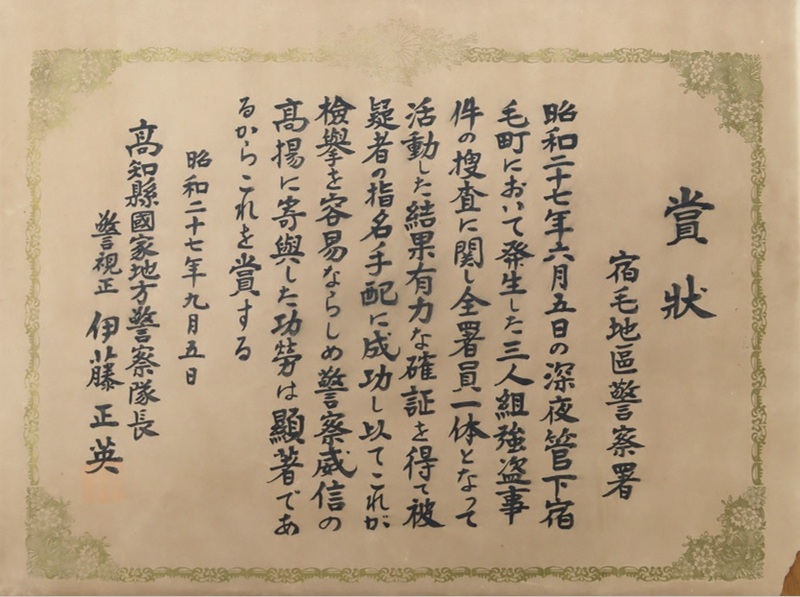 賞狀
宿毛地區警察署
昭和二十七年六月五日の深夜管下宿
毛町において発生した三人組強盗事
件の搜査に関し全署員一体となって
活動した結果有力な確証を得て被
疑者の指名手配に成功し以てこれが
檢擧を容易ならしめ警察威信の
高揚に寄與した功勞は顯著であ
るからこれを賞する
昭和二十七年九月五日
高知縣國家地方警察隊長
警視正 伊藤正英